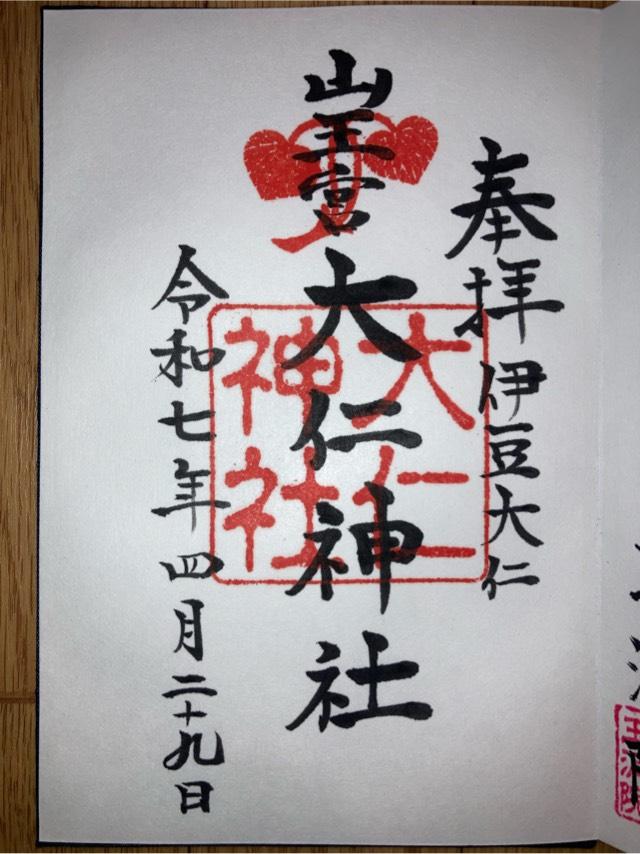 奉拝
伊豆大仁
山王宮
大仁神社
大仁
神社
令和七年四月二十九日